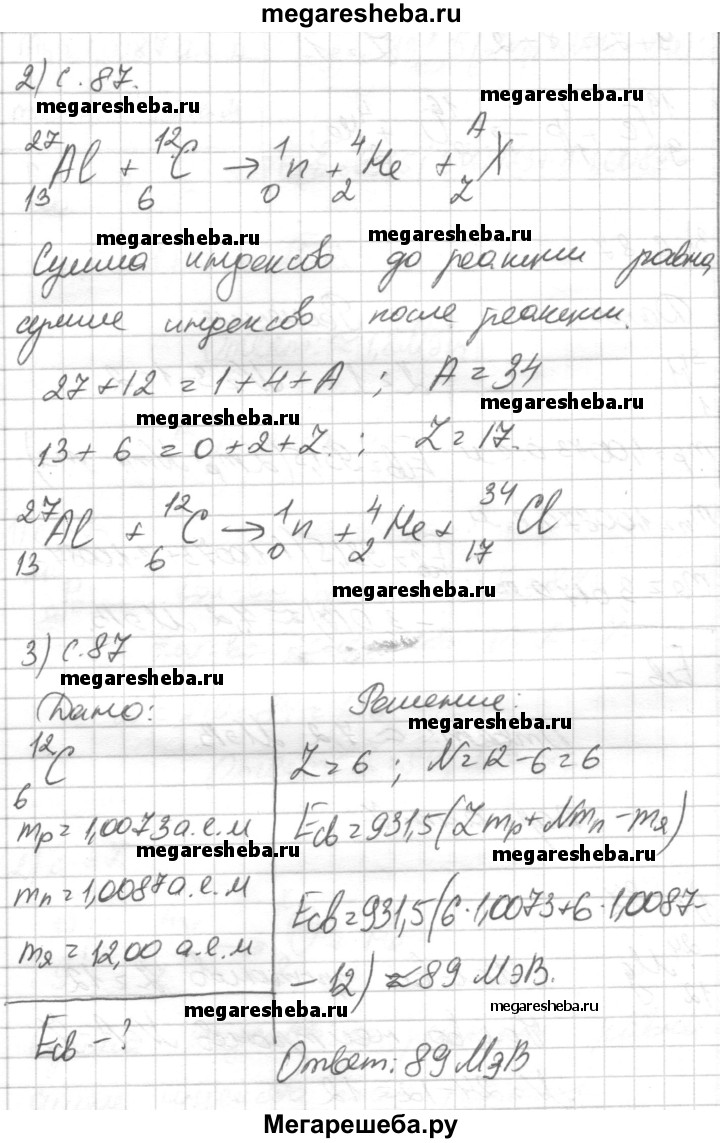 megaresheba.ru
2) с. 87.
megaresheba.ru
megaresheba.ru
²⁷₁₃Al + ¹²₆C → ¹₀n + ⁴₂He + ᴬ_Z X
megaresheba.ru
megaresheba.ru
Сумма индексов до реакции равна
сумме индексов после реакции.
27 + 12 = 1 + 4 + A ; A = 34
megaresheba.ru
megaresheba.ru
13 + 6 = 0 + 2 + Z. ; Z = 17.
²⁷₁₃Al + ¹²₆C → ¹₀n + ⁴₂He + ³⁴₁₇Cl
megaresheba.ru
3) с. 87
megaresheba.ru
Дано:
¹²₆C
mp = 1,0073 а.е.м
megaresheba.ru
mn = 1,0087 а.е.м
mя = 12,00 а.е.м
Eсв - ?
Решение:
megaresheba.ru
Z = 6 ; N = 12 - 6 = 6
Eсв = 931,5 (Zmp + Nmn - mя)
megaresheba.ru
Eсв = 931,5 (6 · 1,0073 + 6 · 1,0087 -
- 12) ≈ 89 МэВ.
megaresheba.ru
megaresheba.ru
Ответ: 89 МэВ
Мегарешеба.ру